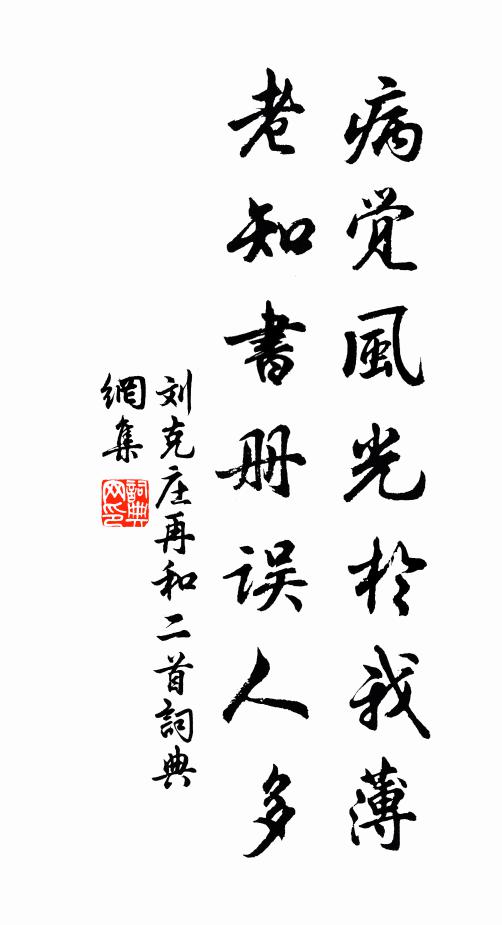 病觉風光於我薄
老知書册误人多
刘克庄再和二首詞典
網集
詞典網印